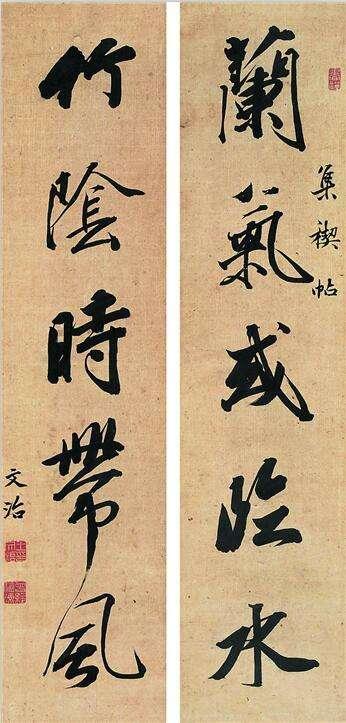 蘭氣或臨水
集禊帖
竹陰時帶風
文治